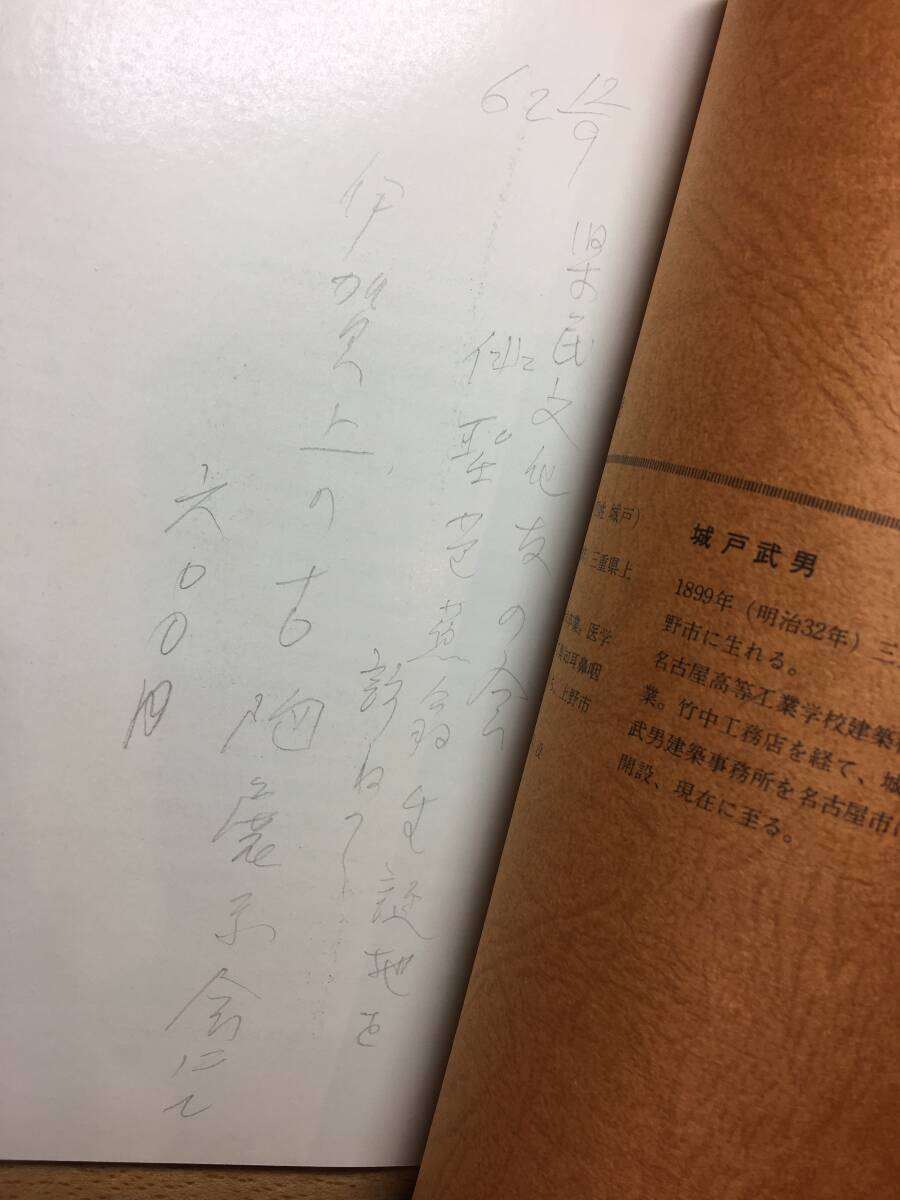 62 12/9
県民文化友の会
俳聖芭蕉翁生誕地を
訪ねて
伊賀上の古陶展示会にて
六〇〇円
城戸)
三重県上
卒業。医学
耳鼻咽
上野市
城戸武男
1899年（明治32年）三
野市に生れる。
名古屋高等工業学校建築
業。竹中工務店を経て、城
武男建築事務所を名古屋市
開設、現在に至る。